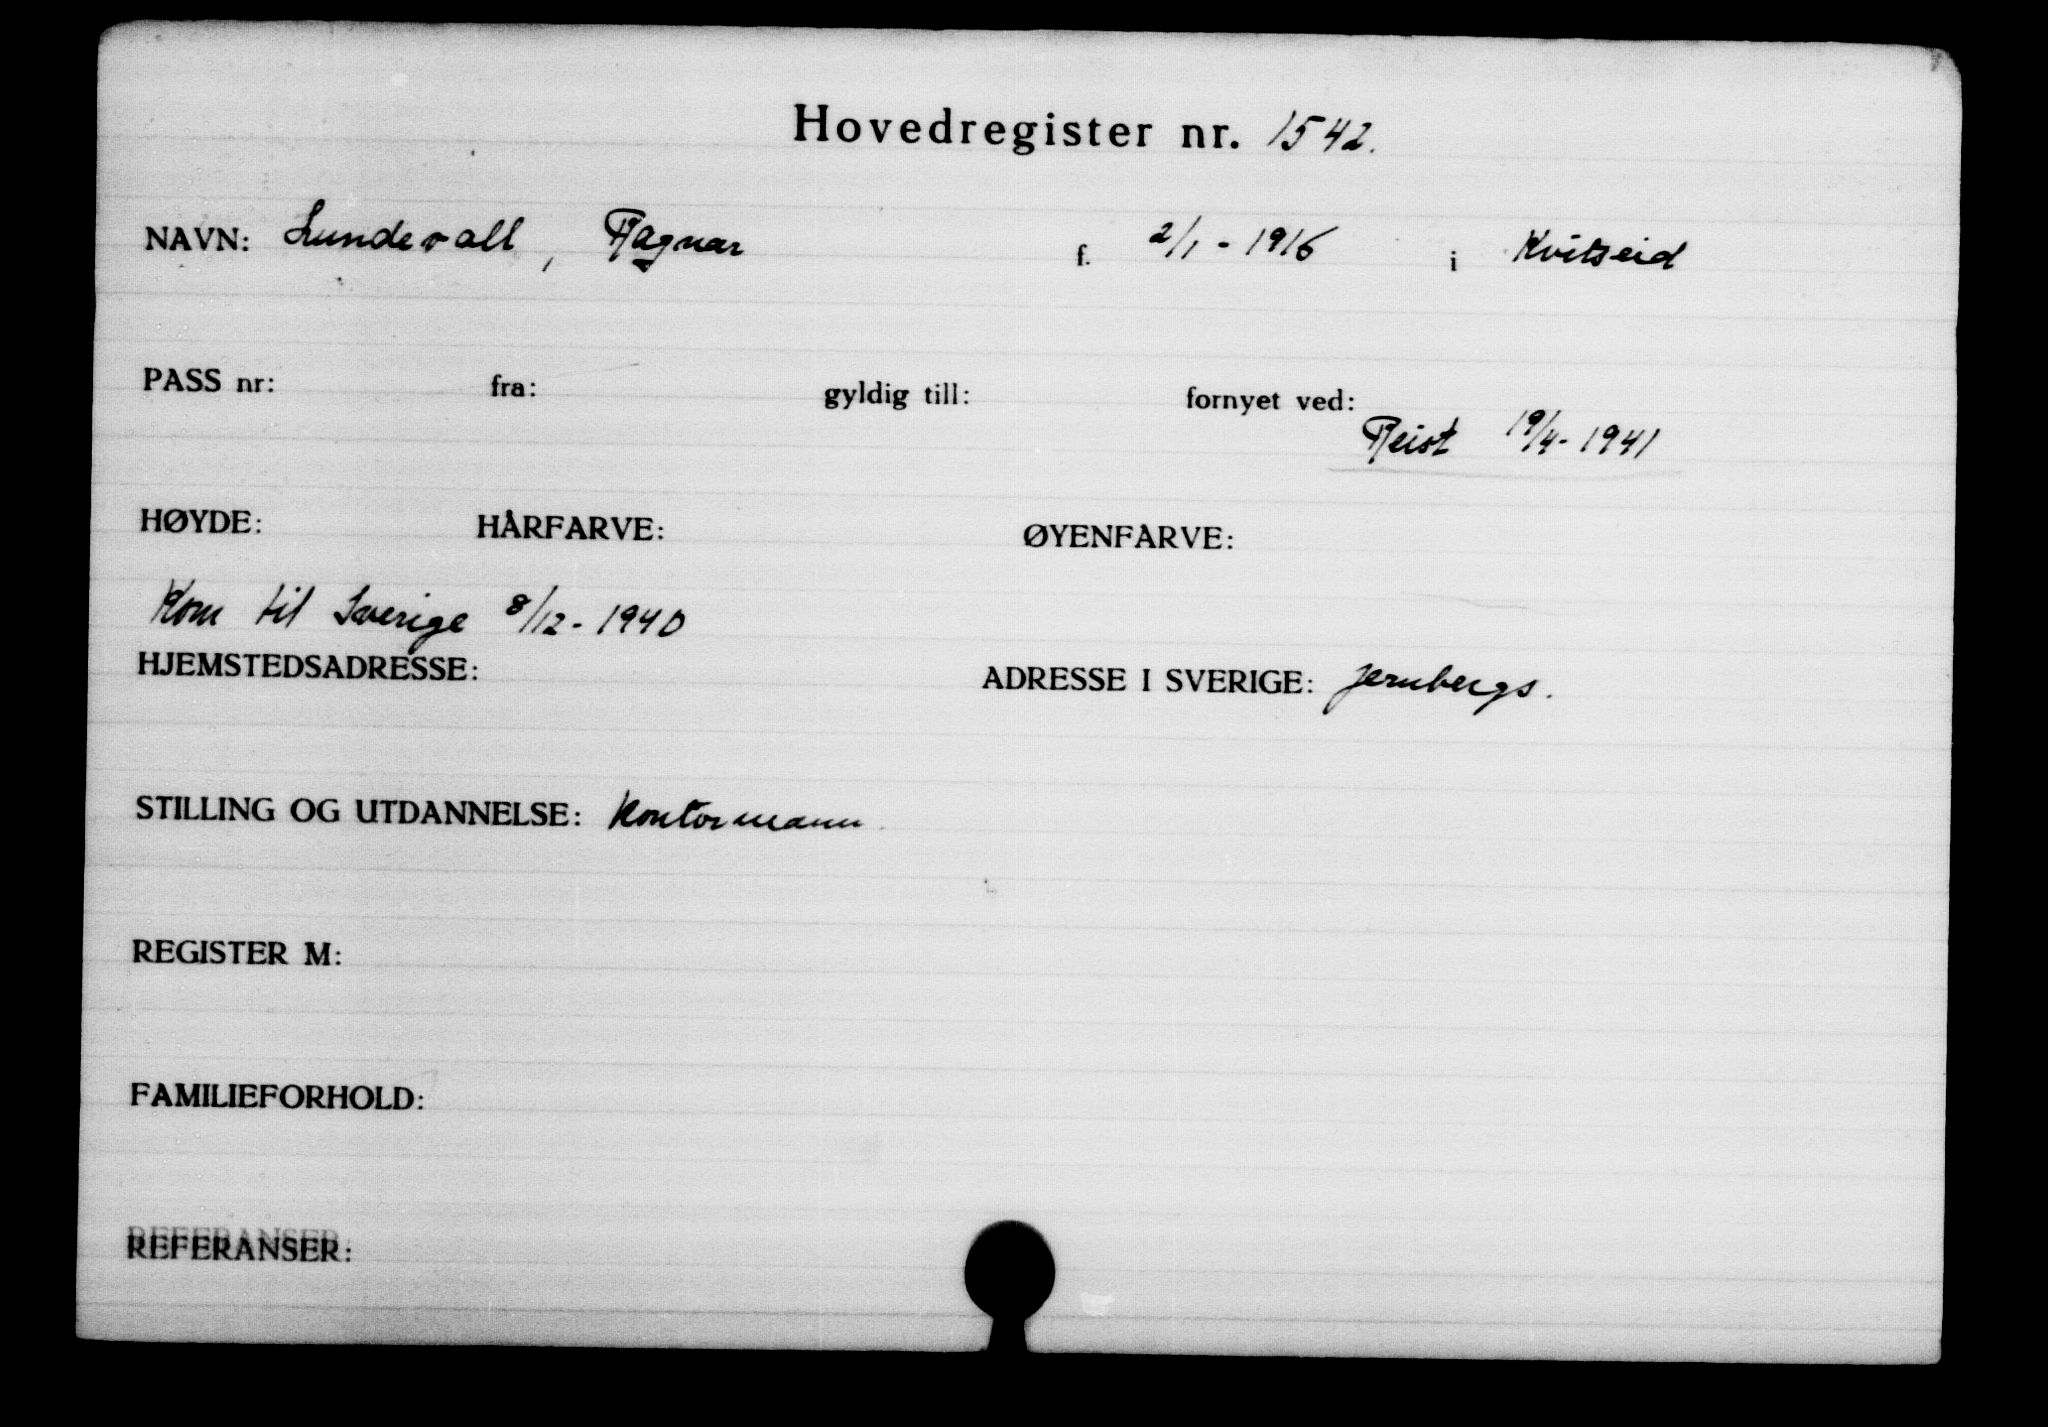 Hovedregister nr. 1542.
NAVN: Lundevall, Ragnar f. 2/1 - 1916 i Kvitseid
PASS nr: fra: gyldig till: fornyet ved:
Reist 19/4 - 1941
HØYDE: HÅRFARVE: ØYENFARVE:
Kom til Sverige 8/12 - 1940
HJEMSTEDSADRESSE: ADRESSE I SVERIGE: Jernbergs.
STILLING OG UTDANNELSE: Kontormann.
REGISTER M:
FAMILIEFORHOLD:
REFERANSER: